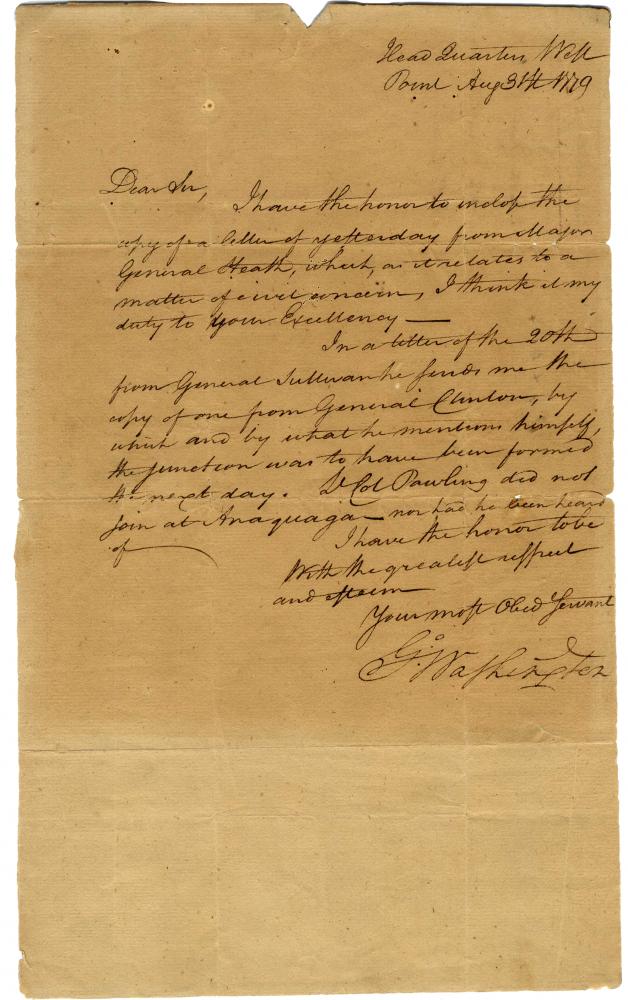 Head Quarters West
Point Aug 31st 1779
Dear Sir,
I have the honor to inclose the
copy of a letter of yesterday from Major
General Heath, which, as it relates to a
matter of civil concern, I think it my
duty to Your Excellency —
In a letter of the 20th
from General Sullivan he sends me the
copy of one from General Clinton, by
which and by what he mentions himself,
the junction was to have been formed
the next day. Lt Col Pawling did not
join at Anaquaga — nor had he been heard
of —
I have the honor to be
With the greatest respect
and esteem
Your most Obed Servant
Go: Washington